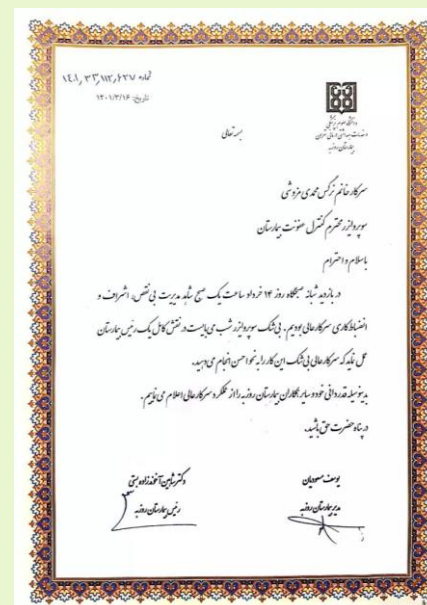 شماره ۱۴۰۱٫۳۳٫۱۱۲٫۶۲۷
تاریخ: ۱۴۰۱/۳/۱۶
دانشگاه علوم پزشکی
و خدمات بهداشتی درمانی تهران
بیمارستان روزبه
بسمه تعالی
سرکار خانم نرگس محمدی
سوپروایزر محترم کنترل عفونت بیمارستان
باسلام و احترام
در بازدید شبانه صبحگاه روز ۱۴ خرداد ساعت یک صبح شاهد مدیریت بی نقص، اشراف و
انضباط کاری سرکارعالی بودیم. بی شک سوپروایزر شب می بایست در نقش کامل یک رئیس بیمارستان
عمل نماید که سرکار عالی بی شک این کار را به نحو احسن انجام می دهید.
بدینوسیله قدردانی خود و سایر همکاران بیمارستان روزبه را از عملکرد سرکار عالی اعلام می نماییم.
در پناه حضرت حق باشید.
یوسف مسعودیان
مدیر بیمارستان روزبه
دکتر شاهین آخوندزاده بستی
رئیس بیمارستان روزبه